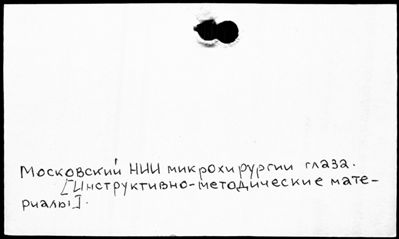 Московский НИИ микрохирургии глаза.
[Инструктивно-методические мате-
риалы].